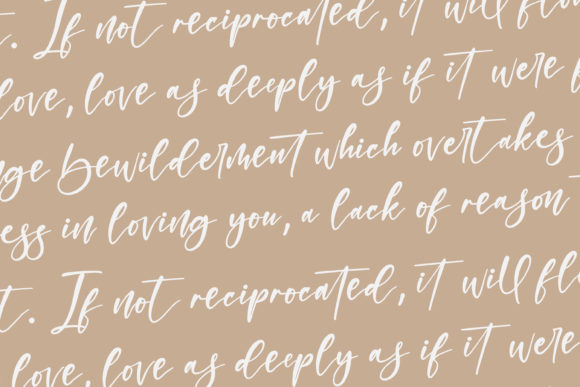 t. If not reciprocated, it will flow
love, love as deeply as if it were f
nge bewilderment which overtakes
ess in loving you, a lack of reason
t. If not reciprocated, it will fl
love, love as deeply as if it were